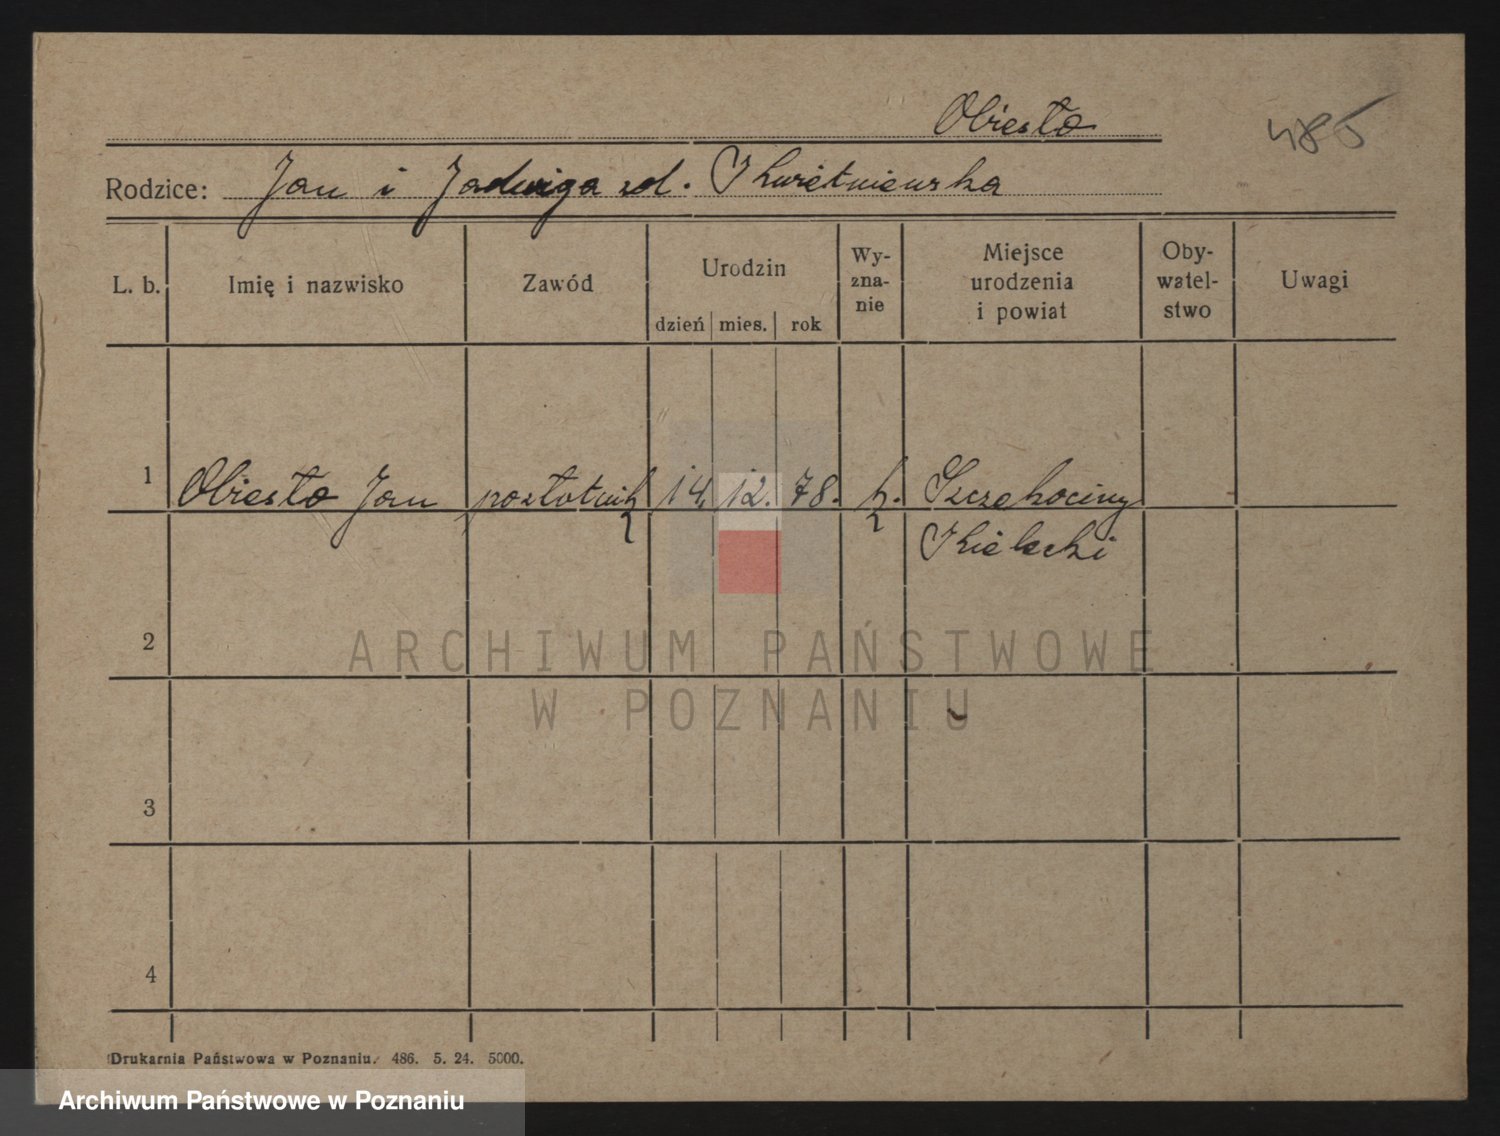 Obiesło
485
Rodzice: Jan i Jadwiga zd. Kwietniewska
L. b.
Imię i nazwisko
Zawód
Urodzin
dzień mies. rok
Wy-
zna-
nie
Miejsce
urodzenia
i powiat
Oby-
watel-
stwo
Uwagi
1 Obiesło Jan pozłotnik 14. 12. 78. k. Szczekociny
Kielecki
2
ARCHIWUM PAŃSTWOWE
W POZNANIU
3
4
Drukarnia Państwowa w Poznaniu. 486. 5. 24. 5000.
Archiwum Państwowe w Poznaniu